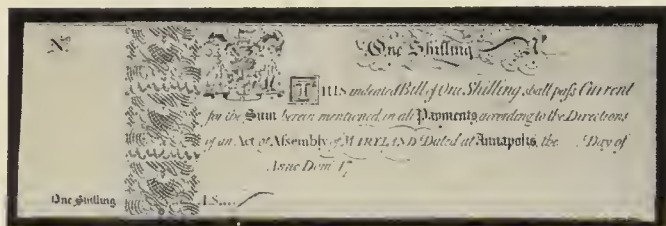 No
One Shilling No
THIS indented Bill of One Shilling shall pass Current
for the Sum herein mentioned, in all Payments, according to the Directions
of an Act of Assembly of MARYLAND Dated at Annapolis, the Day of
Anno Dom 17
One Shilling I.S....